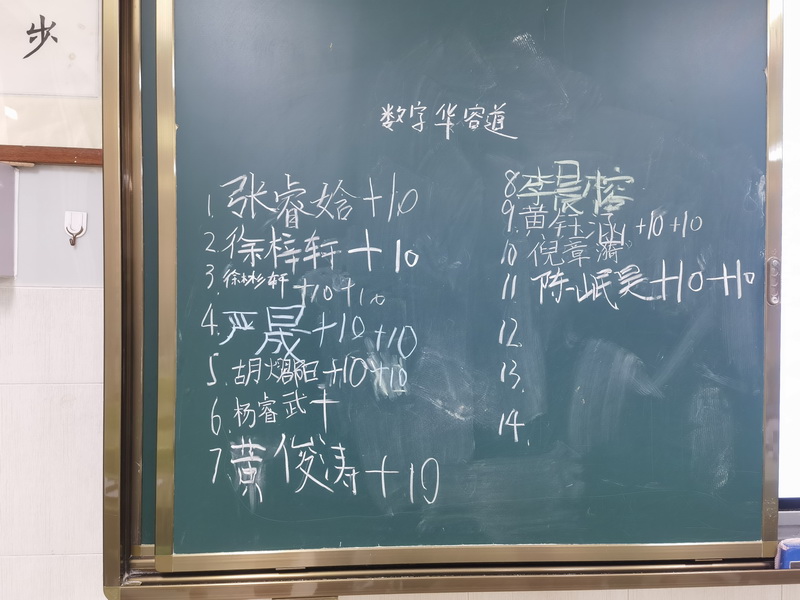 步
数字华容道
1. 张睿姶+10
2. 徐梓轩+10
3. 徐彬轩+10+10
4. 严晟+10+10
5. 胡熠阳+10+10
6. 杨睿武+
7. 黄俊涛+10
8. 李晨榕
9. 黄钰涵+10+10
10 倪章
11 陈岷昊+10+10
12.
13.
14.